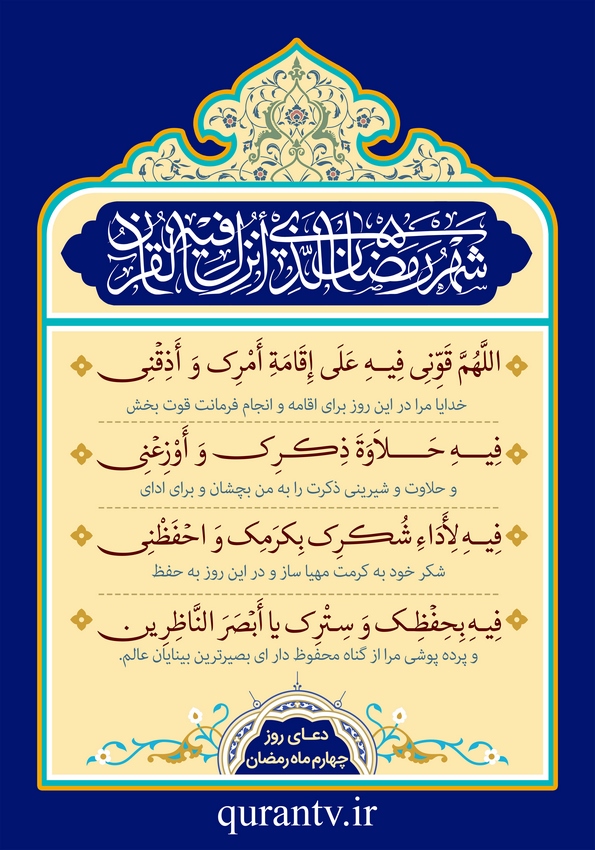 شهر رمضان الذي أنزل فيه القرآن
اللَّهُمَّ قَوِّنِی فِیـهِ عَلَی إِقَامَةِ أَمْرِک وَ أَذِقْنِی
خدایا مرا در این روز برای اقامه و انجام فرمانت قوت بخش
فِیـهِ حَـلاَوَةَ ذِکـرِک وَ أَوْزِعْنِی
و حلاوت و شیرینی ذکرت را به من بچشان و برای ادای
فِیـهِ لِأَدَاءِ شُکـرِک بِکرَمِک وَ احْفَظْنِی
شکر خود به کرمت مهیا ساز و در این روز به حفظ
فِیهِ بِحِفْظِک وَ سِتْرِک یا أَبْصَرَ النَّاظِرِین
و پرده پوشی مرا از گناه محفوظ دار ای بصیرترین بینایان عالم.
دعـای روز
چهارم ماه رمضان
qurantv.ir